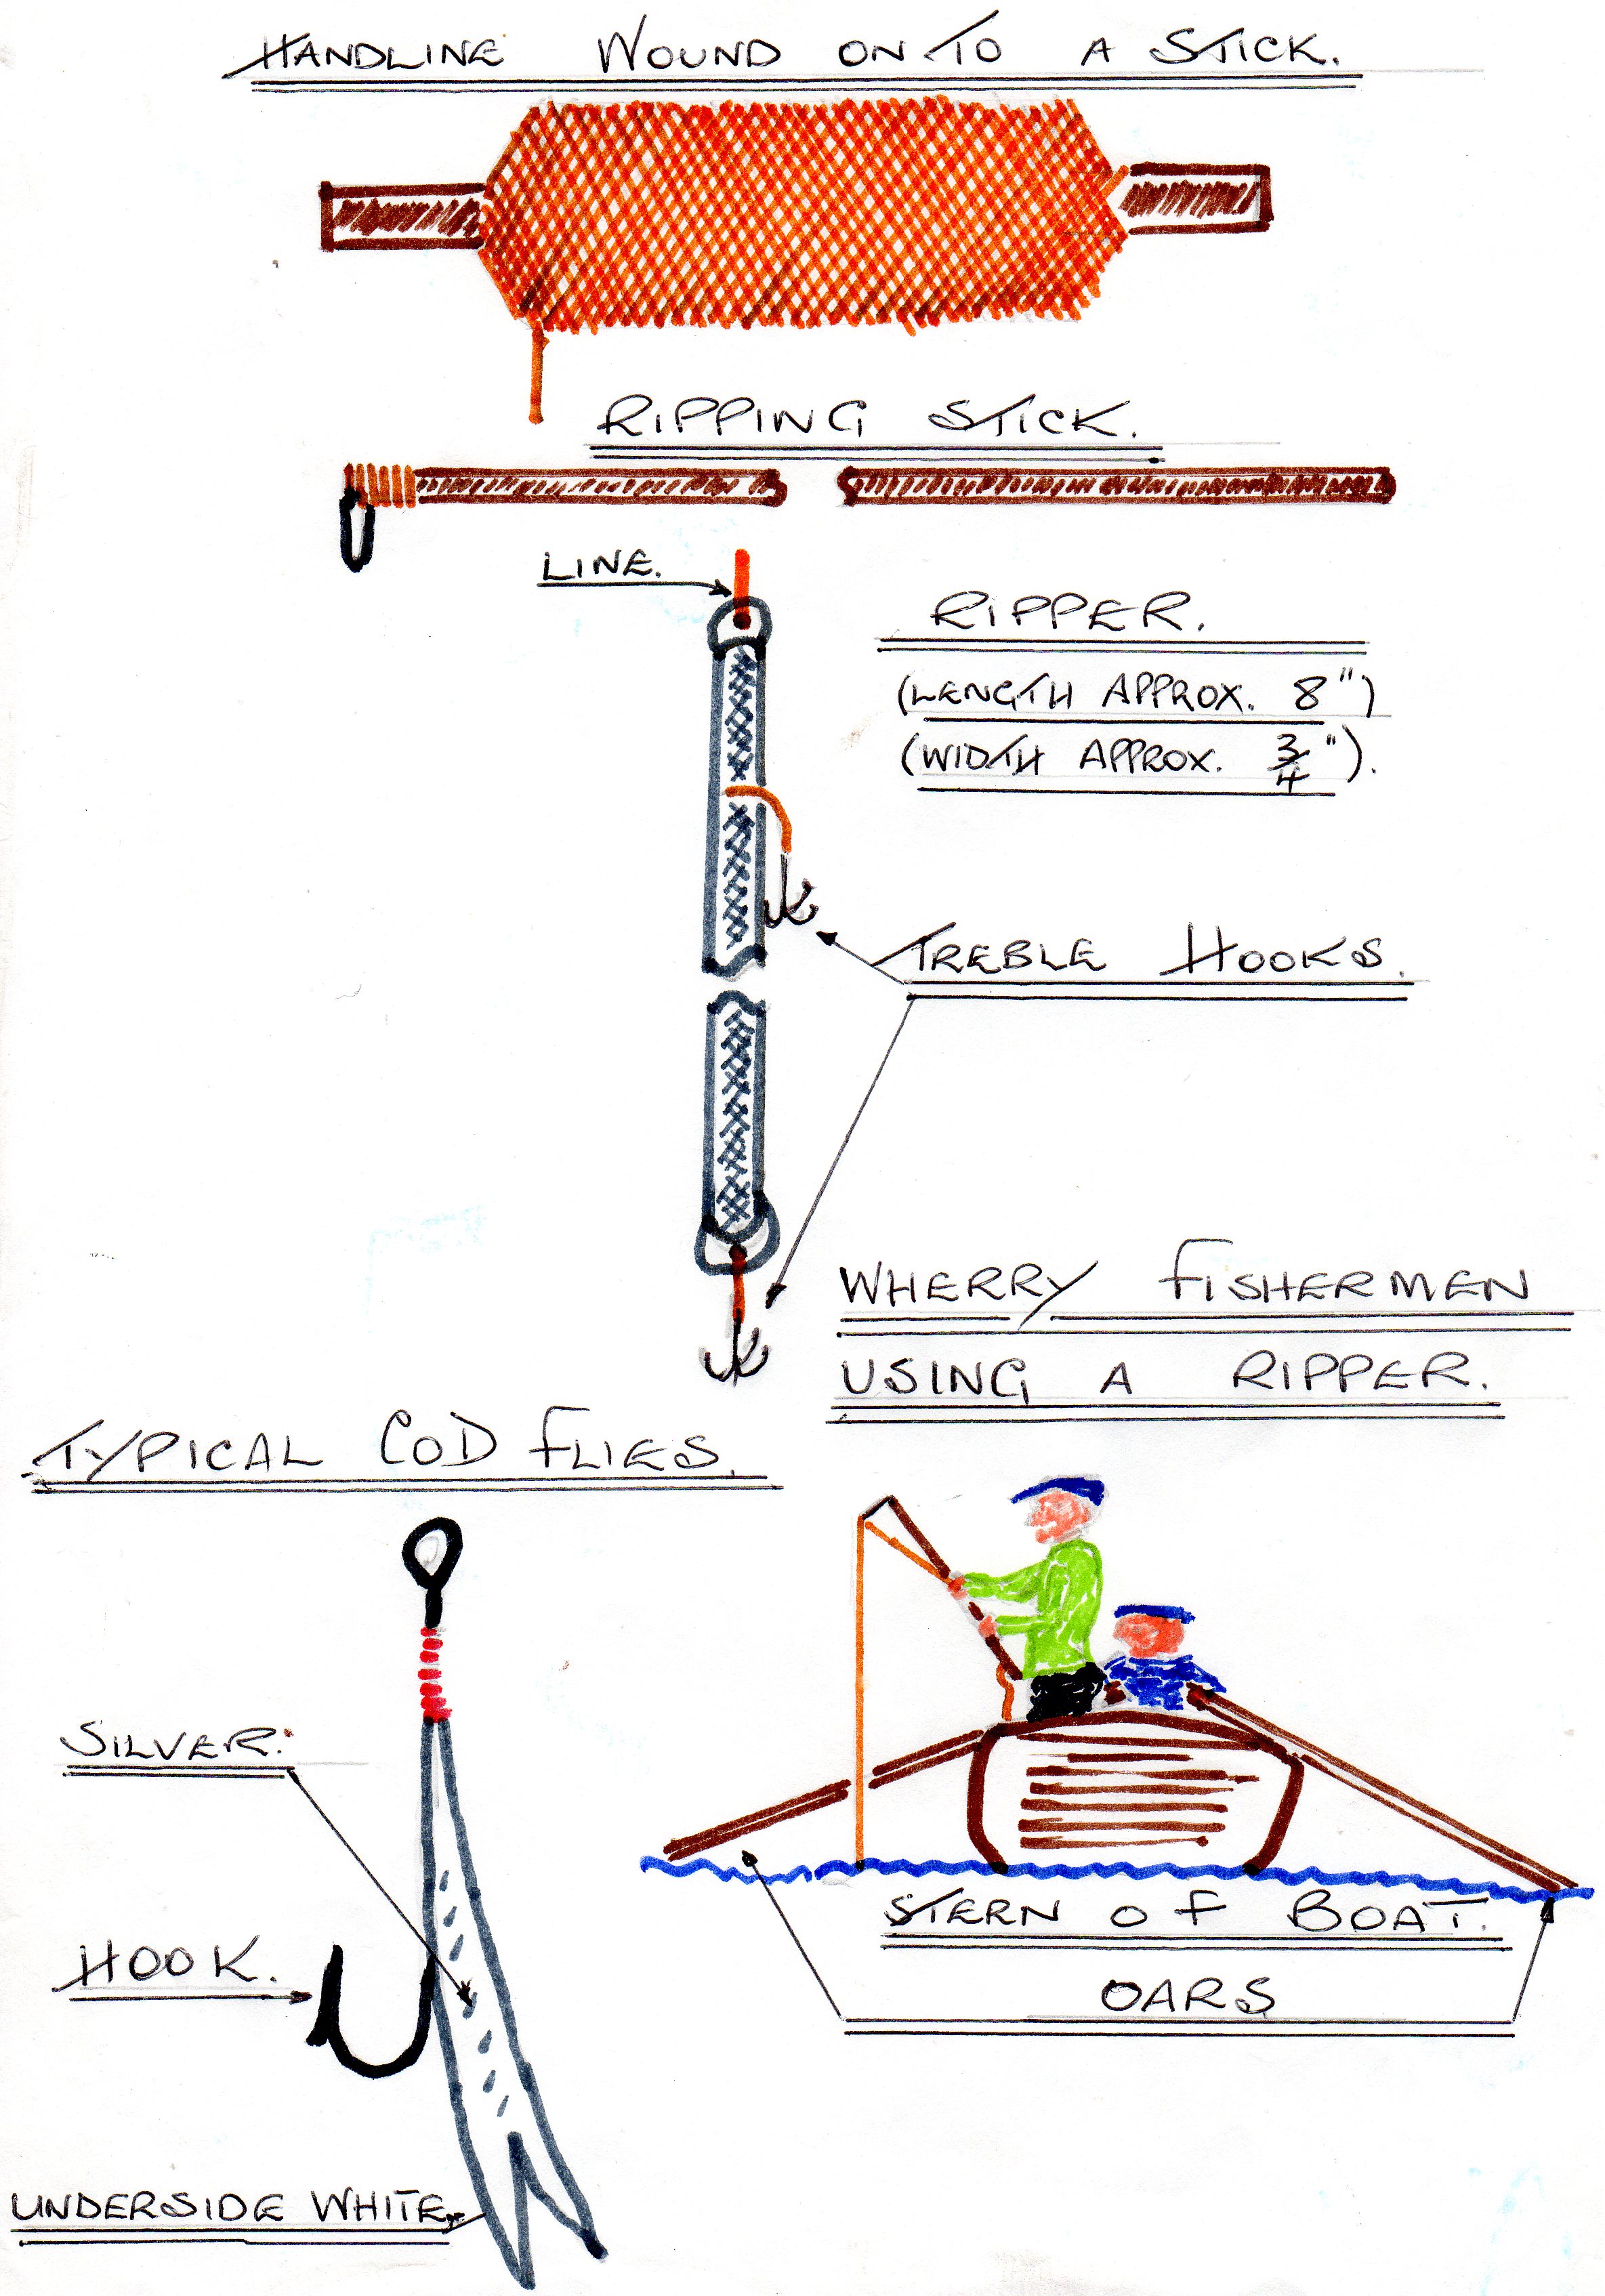 HANDLINE WOUND ON TO A STICK.
RIPPING STICK.
LINE.
RIPPER.
(LENGTH APPROX. 8")
(WIDTH APPROX. 3/4").
TREBLE HOOKS.
WHERRY FISHERMEN
USING A RIPPER.
TYPICAL COD FLIES.
SILVER.
HOOK.
UNDERSIDE WHITE.
STERN OF BOAT.
OARS